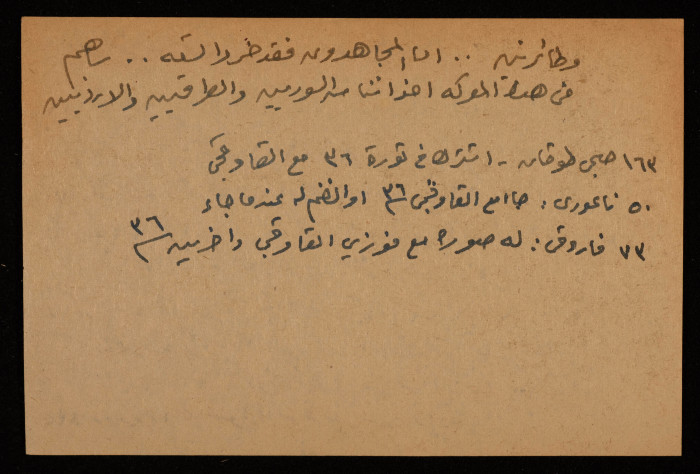 وطائرتين .. اما المجاهدون فقد خسروا ستة .. ساهم
في هذه المعركة اخواننا من السوريين والعراقيين والاردنيين
١٦٣ صبحي طوقان - اشترك في ثورة ٣٦ مع القاوقجي
٥٠ ناعوري : جاء مع القاوقجي ٣٦ او انضم له عندما جاء
٧٣ فاروق : له صورة مع فوزي القاوقجي واخرين ٣٦